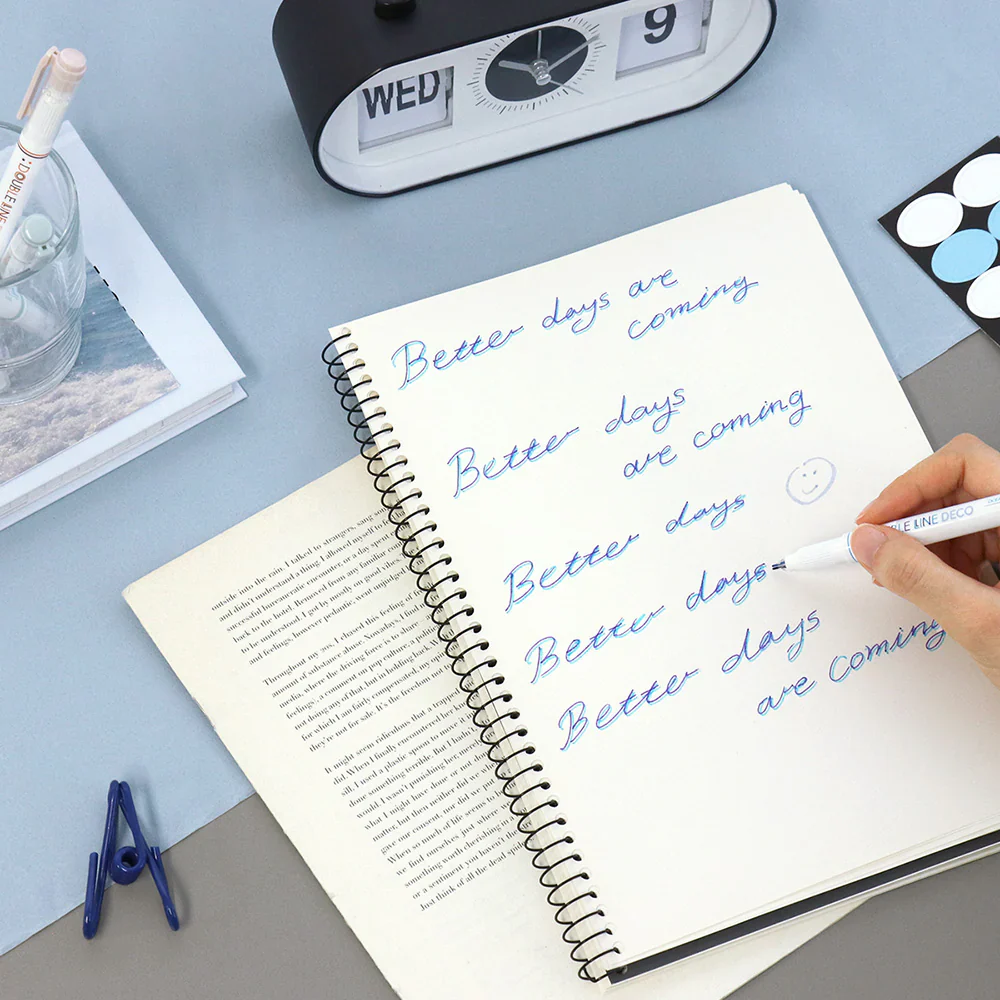 WED
9
:DOUBLE LINE
Better days are
coming
Better days
are coming
Better days
Better days
Better days
are coming
BLE LINE DECO
outside into the rain. I talked to strangers, sang
and didn't understand a thing. I allowed myself to
successful bureaucratic encounter, or a day spent
back to the hotel. Removed from any familiar
to be understood, I got by mostly on good
and feelings, however pedantic, went unjudged
Throughout my 20s, I chased this feeling of
amount of substance abuse. Nowadays, I find
media, where the driving force is to share
feelings, a comment on pop culture, a
not doing any of that, but in holding back. W
for which I am fairly compensated, my
they're not for sale. It's the freedom not to
It might seem ridiculous that a trapped
did. When I finally encountered her
all, I used a plastic spoon to move it
done something terrible. But I hadn't
would I wasn't punishing her, merely
what I might have done or not
matter, but then neither did we
gave our consent, nor did we
When so much of life seems
we find ourselves just where
something worth cherishing in a
or a sentiment you haven't the
Just think of all the dead